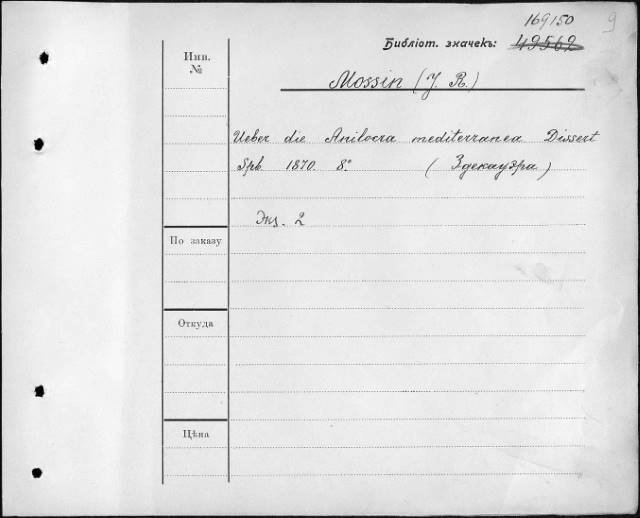 169150
9
Библіот. значекъ: 49562
Инв.
№
Mossin (J. R.)
Ueber die Anilocra mediterranea Dissert
Spb. 1870. 8°. (Здекауэра)
Экз. 2
По заказу
Откуда
Цѣна